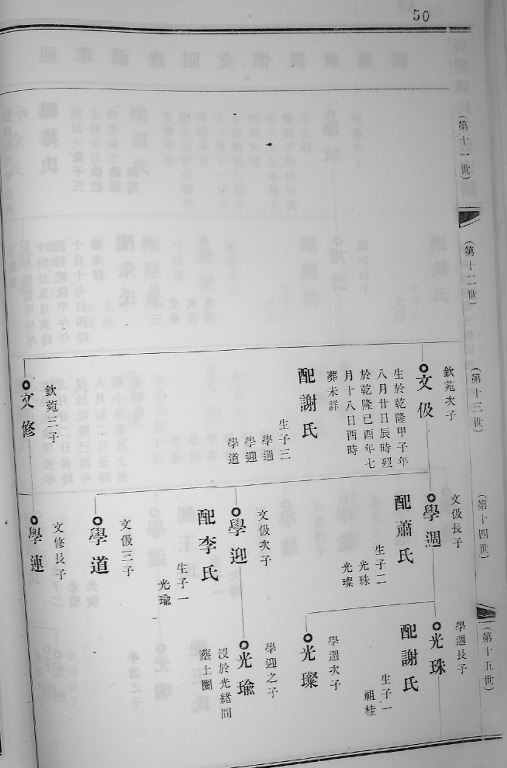 50
(第十一世)
(第十二世)
(第十三世)
(第十四世)
(第十五世)
文伋
欽菀次子
生於乾隆甲子年
八月廿日辰時歿
於乾隆己酉年七
月十八日酉時
葬未詳
配謝氏
生子三
學週
學迎
學道
文修
欽菀三子
學週
文伋長子
配蕭氏
生子二
光珠
光璨
學迎
文伋次子
配李氏
生子一
光瑜
學道
文伋三子
學蓮
文修長子
光珠
學週長子
配謝氏
生子一
祖桂
光璨
學週次子
光瑜
學迎之子
沒於光緒間
葬土圍